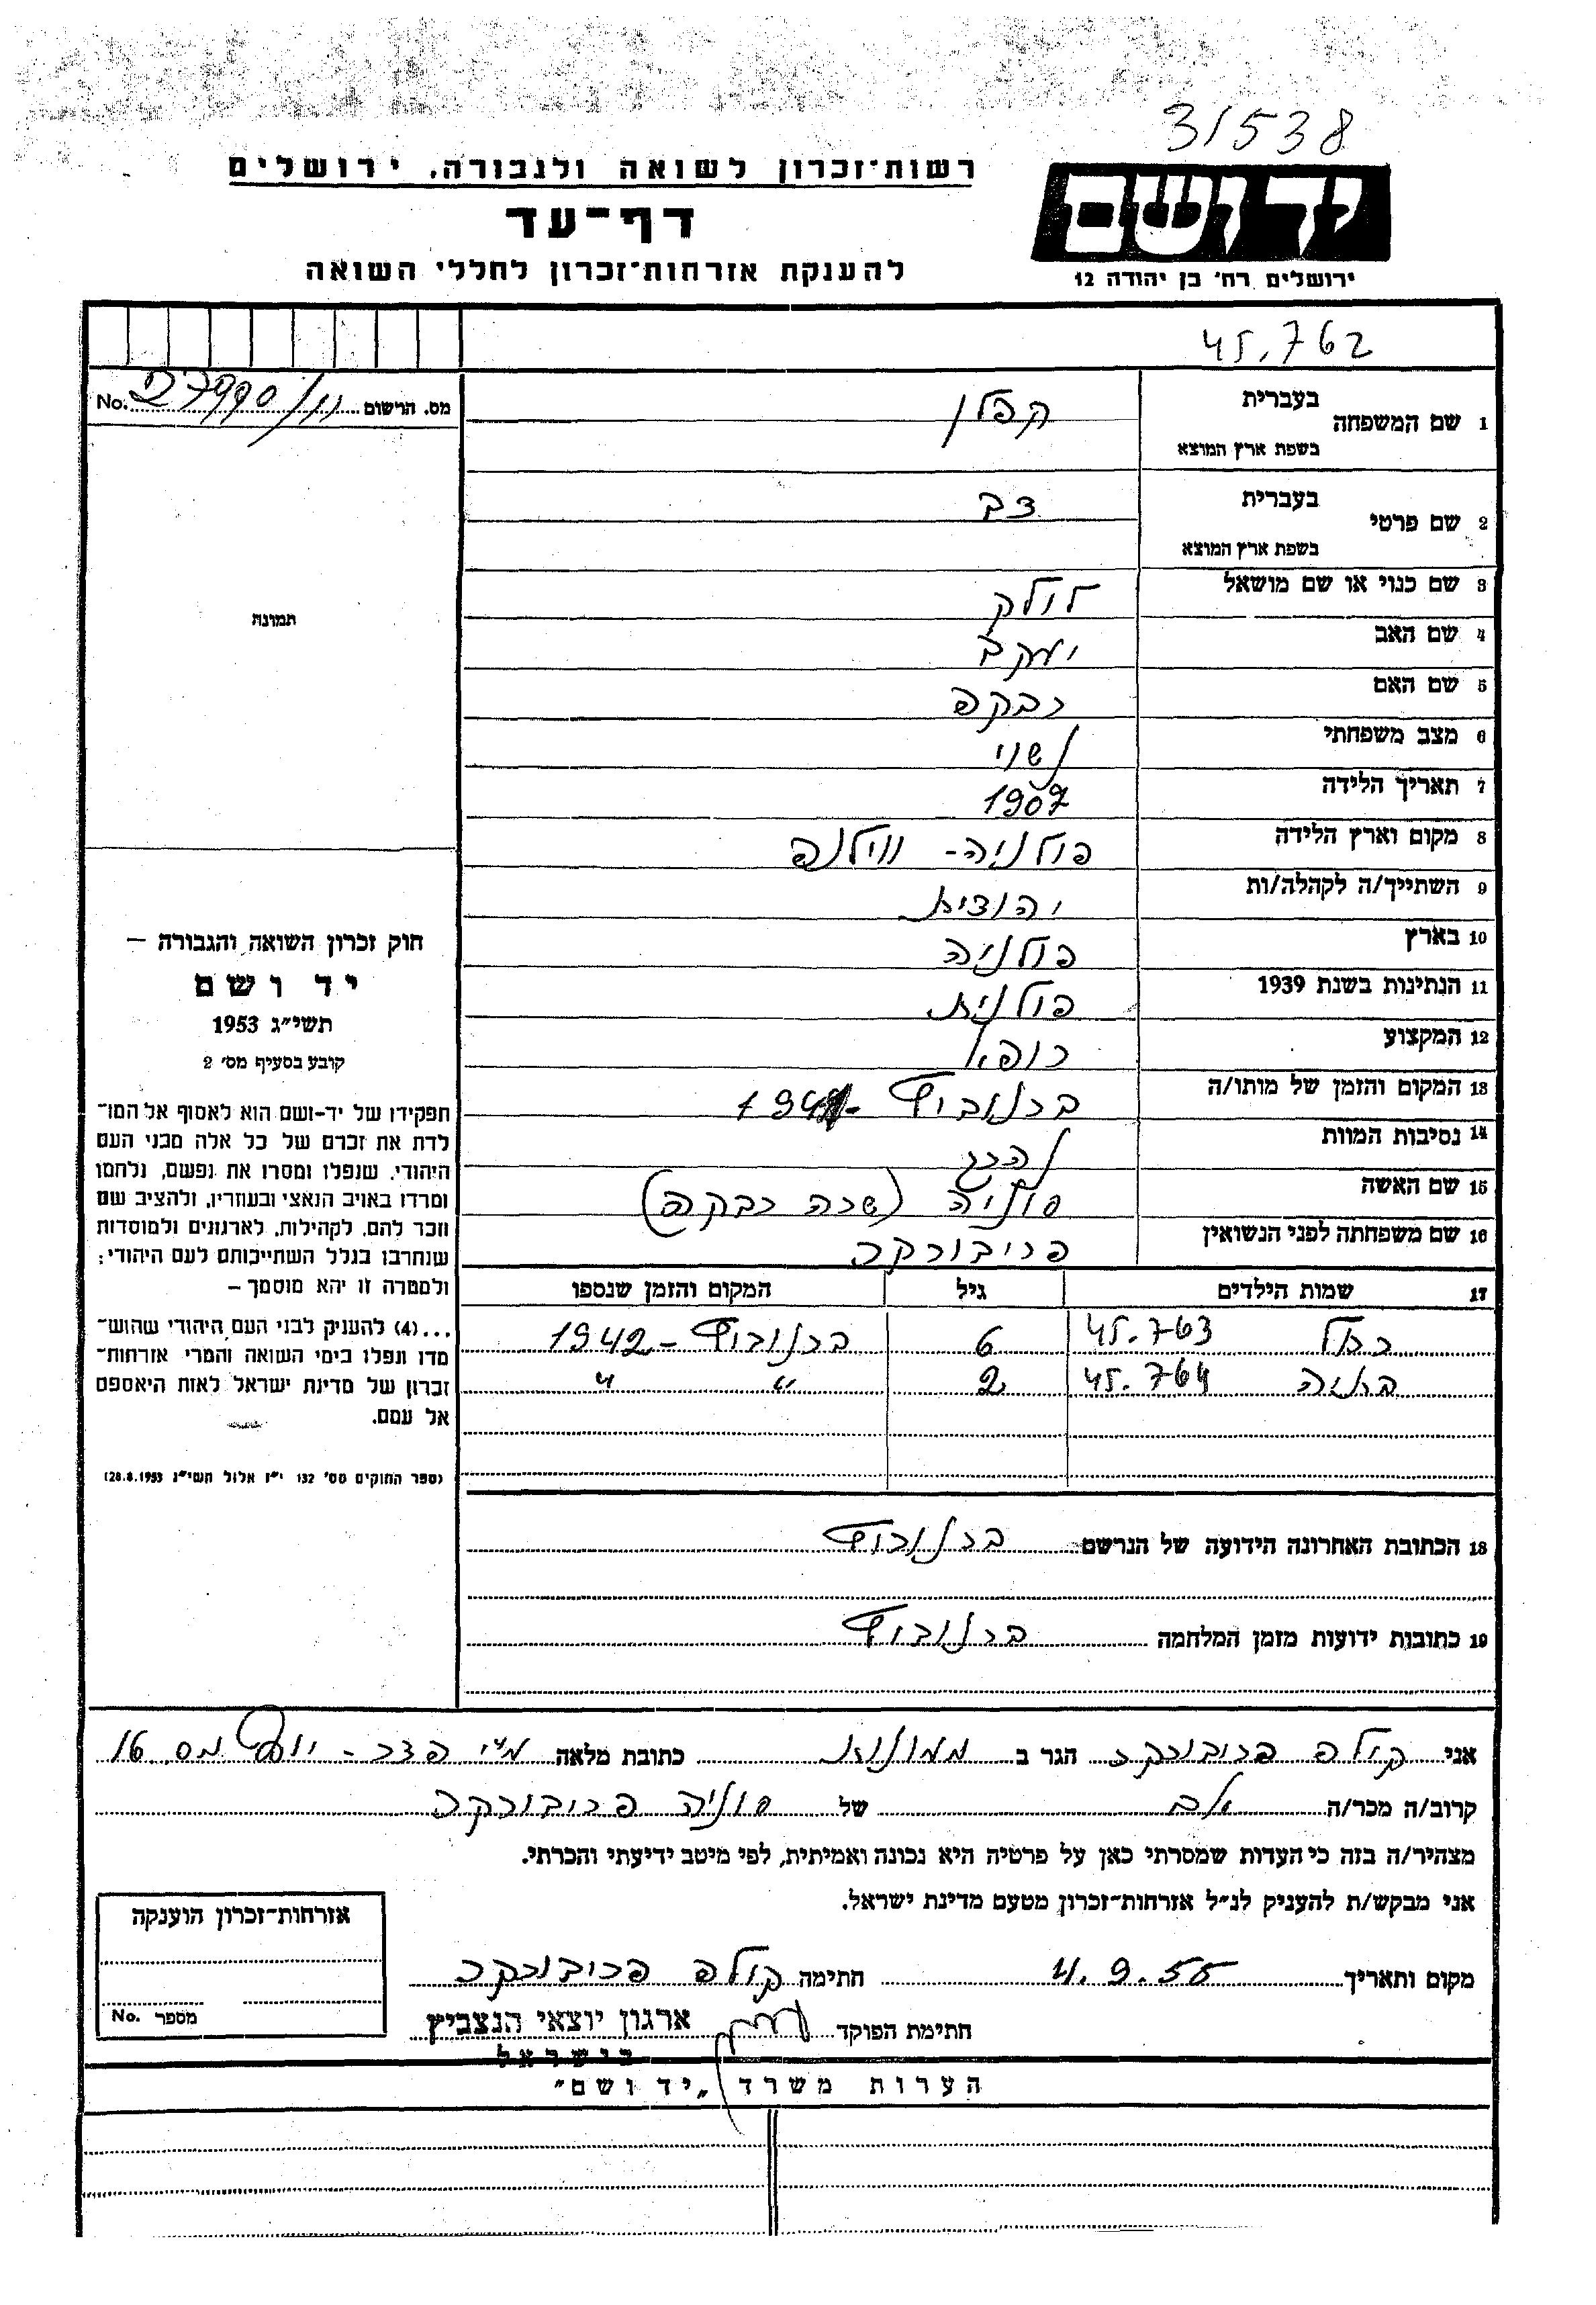 31538
רשות־זכרון לשואה ולגבורה, ירושלים
יד ושם
דף־עד
להענקת אזרחות־זכרון לחללי השואה
ירושלים רח' בן יהודה 12
45.762
מס. הרשום 27990/11 No.
1 שם המשפחה בעברית קפלן
בשפת ארץ המוצא
2 שם פרטי בעברית צב
בשפת ארץ המוצא
3 שם כנוי או שם מושאל לולק
4 שם האב יעקב
5 שם האם רבקה
6 מצב משפחתי נשוי
7 תאריך הלידה 1907
8 מקום וארץ הלידה פולניה - ווילנה
9 השתייך/ה לקהלה/ות יהודית
10 בארץ פולניה
11 הנתינות בשנת 1939 פולנית
12 המקצוע רופא
13 המקום והזמן של מותו/ה ברנוביץ
14 נסיבות המוות נהרג
15 שם האשה סוניה (שרה רבקה)
16 שם משפחתה לפני הנשואין פריבורקר
17 שמות הילדים גיל המקום והזמן שנספו
45.763 6 ברנוביץ - 1942
בתיה 45.764 2 " "
18 הכתובת האחרונה הידועה של הנרשם ברנוביץ
19 כתובות ידועות מזמן המלחמה ברנוביץ
תמונה
חוק זכרון השואה והגבורה –
יד ושם
תשי״ג 1953
קובע בסעיף מס' 2
תפקידו של יד-ושם הוא לאסוף אל המו־
לדת את זכרם של כל אלה מבני העם
היהודי, שנפלו ומסרו את נפשם, נלחמו
ומרדו באויב הנאצי ובעוזריו, ולהציב שם
וזכר להם, לקהילות, לארגונים ולמוסדות
שנחרבו בגלל השתייכותם לעם היהודי;
ולמטרה זו יהא מוסמך –
...(4) להעניק לבני העם היהודי שהוש־
מדו ונפלו בימי השואה והמרי אזרחות־
זכרון של מדינת ישראל לאות היאספם
אל עמם.
(ספר החוקים מס' 132 י״ז אלול תשי״ג 28.8.1953)
אני פריבורקר הגר ב כתובת מלאה 16
קרוב/ה מכר/ה אב של סוניה פריבורקר
מצהיר/ה בזה כי העדות שמסרתי כאן על פרטיה היא נכונה ואמיתית, לפי מיטב ידיעתי והכרתי.
אני מבקש/ת להעניק לנ״ל אזרחות־זכרון מטעם מדינת ישראל.
מקום ותאריך 4.9.55 חתימה פריבורקר
חתימת הפוקד
ארגון יוצאי הנצביץ
בישראל
אזרחות־זכרון הוענקה
מספר No.
הערות משרד „יד ושם״